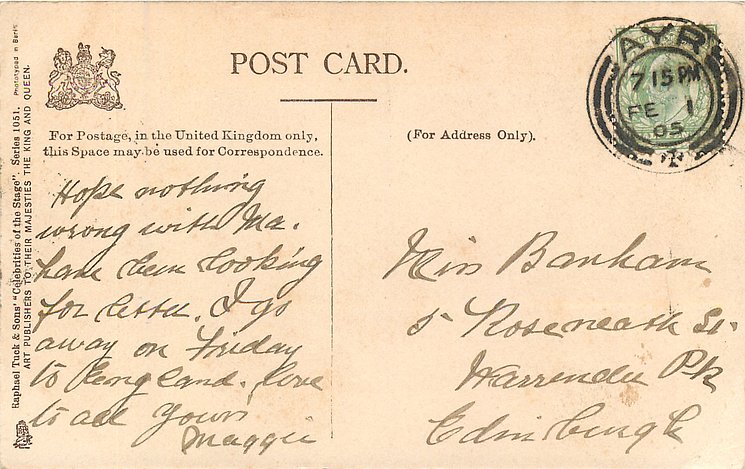 POST CARD.
For Postage, in the United Kingdom only,
this Space may be used for Correspondence.
(For Address Only).
AYR
7 15 PM
FE 1
05
Hope nothing
wrong with Ma.
have been looking
for letter. I go
away on Friday
to England. love
to all yours
Maggie
Miss Banham
5 Roseneath St.
Warrender Pk
Edinburgh
Raphael Tuck & Sons' "Celebrities of the Stage". Series 1051.
ART PUBLISHERS TO THEIR MAJESTIES THE KING AND QUEEN.
Phototyped in Berlin